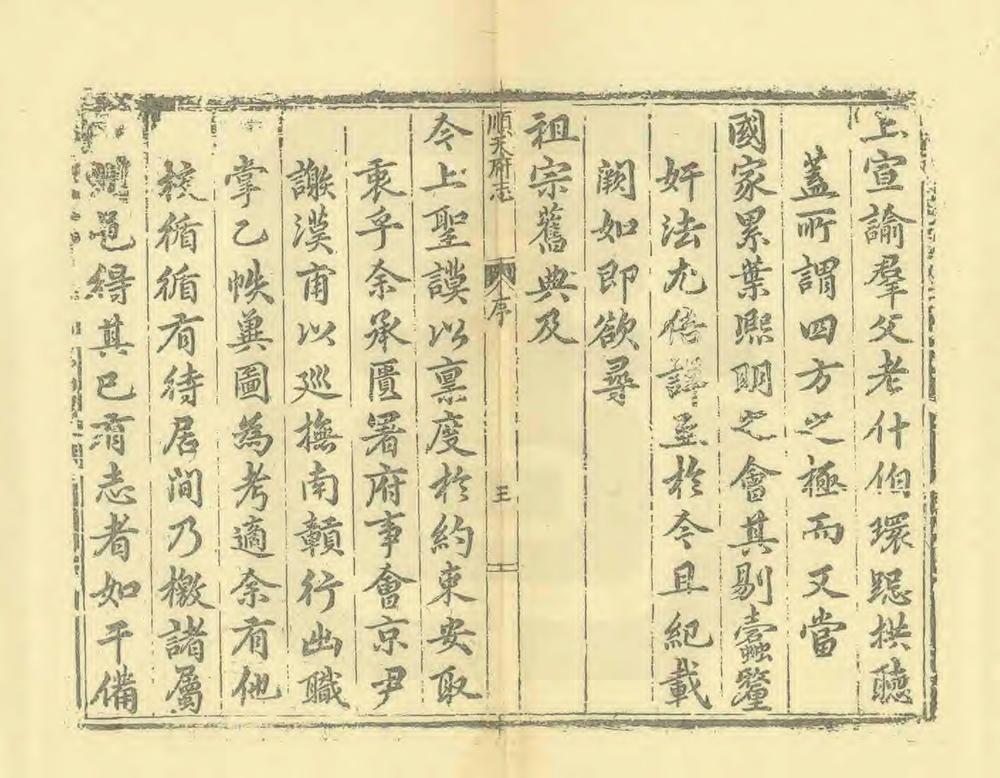 上宣諭羣父老什伯環跽拱聽
蓋所謂四方之極而又當
國家累葉熙明之會其剔蠹釐
奸法尤倍詳至於今且紀載
闕如即欲尋
祖宗舊典及
順天府志 序 王
今上聖謨以稟度於約束安取
衷乎余承匱署府事會京尹
謝漢甫以巡撫南贛行出職
掌乙帙兼圖為考適余有他
移循循有待居間乃檄諸屬
邑得其已有志者如干備